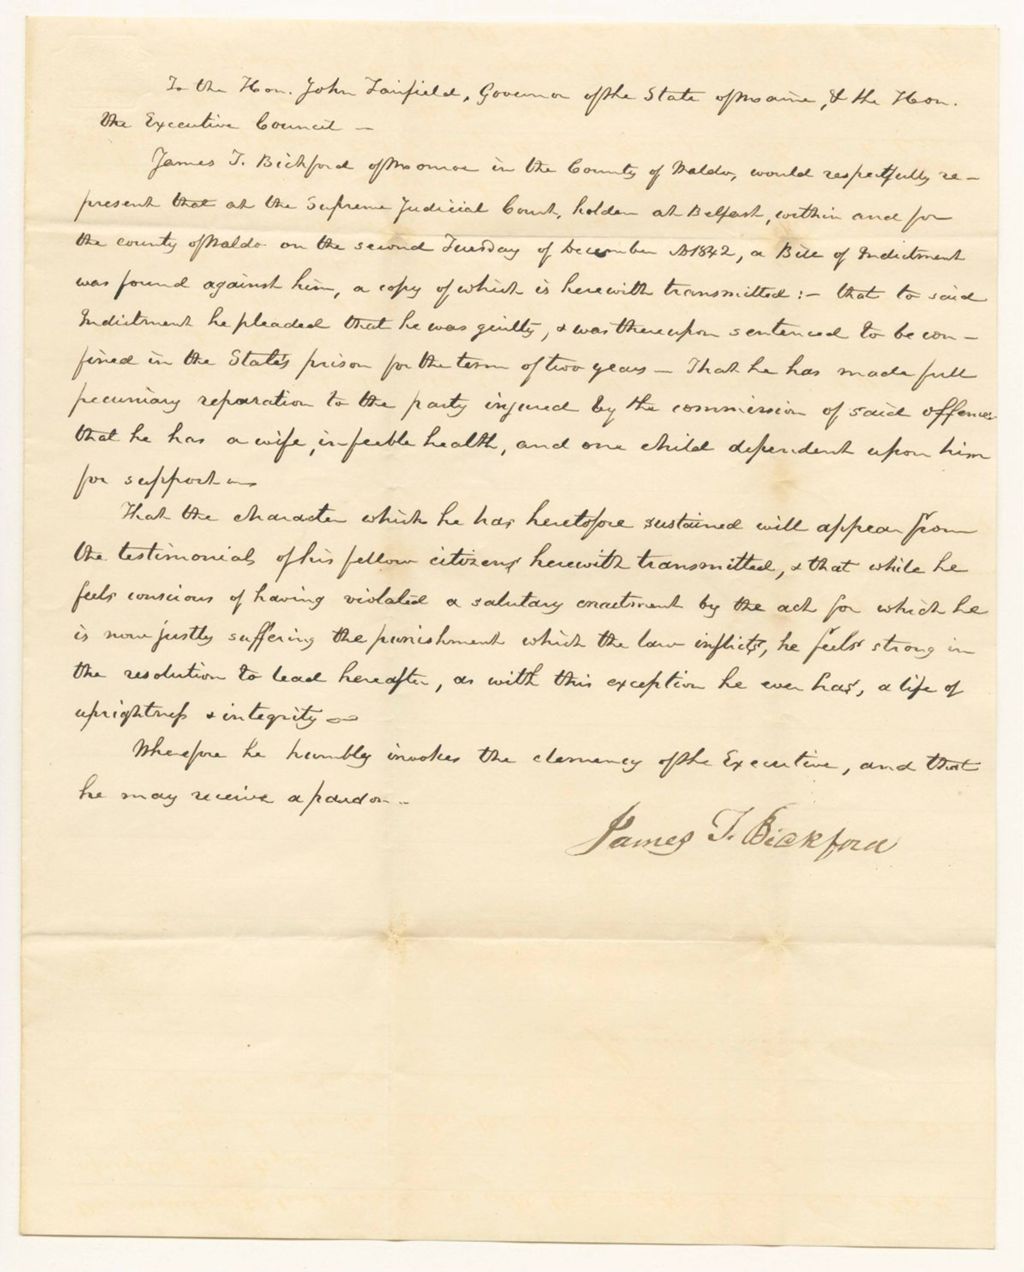 To the Hon. John Fairfield, Governor of the State of Maine, & the Hon.
the Executive Council —
James T. Bickford of Monroe in the County of Waldo, would respectfully re-
present that at the Supreme Judicial Court, holden at Belfast, within and for
the county of Waldo on the second Tuesday of December A 1842, a Bill of Indictment
was found against him, a copy of which is herewith transmitted :- that to said
Indictment he pleaded that he was guilty, & was thereupon sentenced to be con-
fined in the State's prison for the term of two years — That he has made full
pecuniary reparation to the party injured by the commission of said offence
that he has a wife, in feeble health, and one child dependent upon him
for support —
That the character which he has heretofore sustained will appear from
the testimonials of his fellow citizens herewith transmitted, & that while he
feels conscious of having violated a salutary enactment by the act for which he
is now justly suffering the punishment which the law inflicts, he feels strong in
the resolution to lead hereafter, as with this exception he ever has, a life of
uprightness & integrity —
Wherefore he humbly invokes the clemency of the Executive, and that
he may receive a pardon —
James T. Bickford